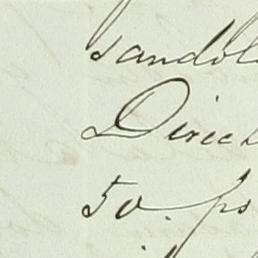 sandol
Direc
50. ps